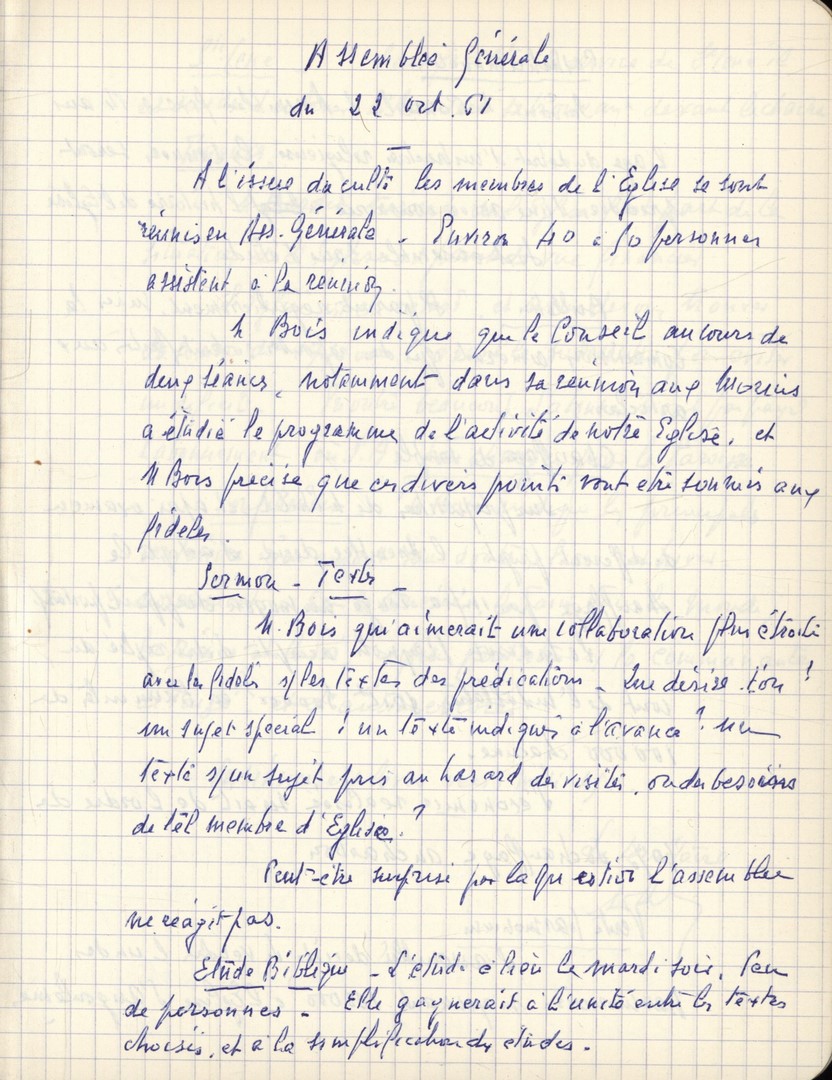 Assemblée Générale
du 22 oct. 61
A l'issue du culte les membres de l'Eglise se sont
réunis en Ass. Générale - Environ 40 à 50 personnes
assistent à la réunion.
M Bois indique que le Conseil au cours de
deux séances, notamment dans sa réunion aux
a étudié le programme de l'activité de notre Eglise, et
M Bois précise que ces divers points vont etre soumis aux
fideles.
Sermon - Texte -
M. Bois qui aimerait une collaboration plus étroite
avec les fidèles s/ les textes des prédications - Que désire t'on !
un sujet special ! un texte indiqué à l'avance ? un
texte s/ un sujet pris au hasard des visites, ou des besoins
de tel membre d'Eglise ?
Peut-etre surprise par la question l'assemblée
ne réagit pas.
Etude Biblique - L'étude a lieu le mardi soir. Peu
de personnes - Elle gagnerait à l'unité entre les textes
choisis, et à la simplification des études.